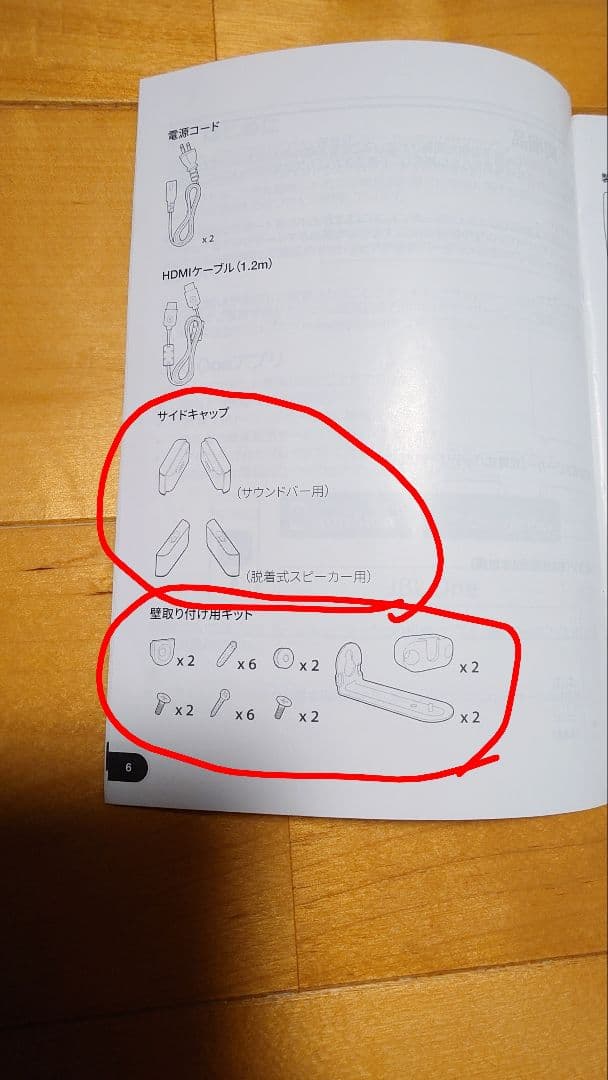 電源コード
x 2
HDMIケーブル(1.2m)
サイドキャップ
(サウンドバー用)
(脱着式スピーカー用)
壁取り付け用キット
x 2 x 6 x 2 x 2
x 2 x 6 x 2 x 2
6